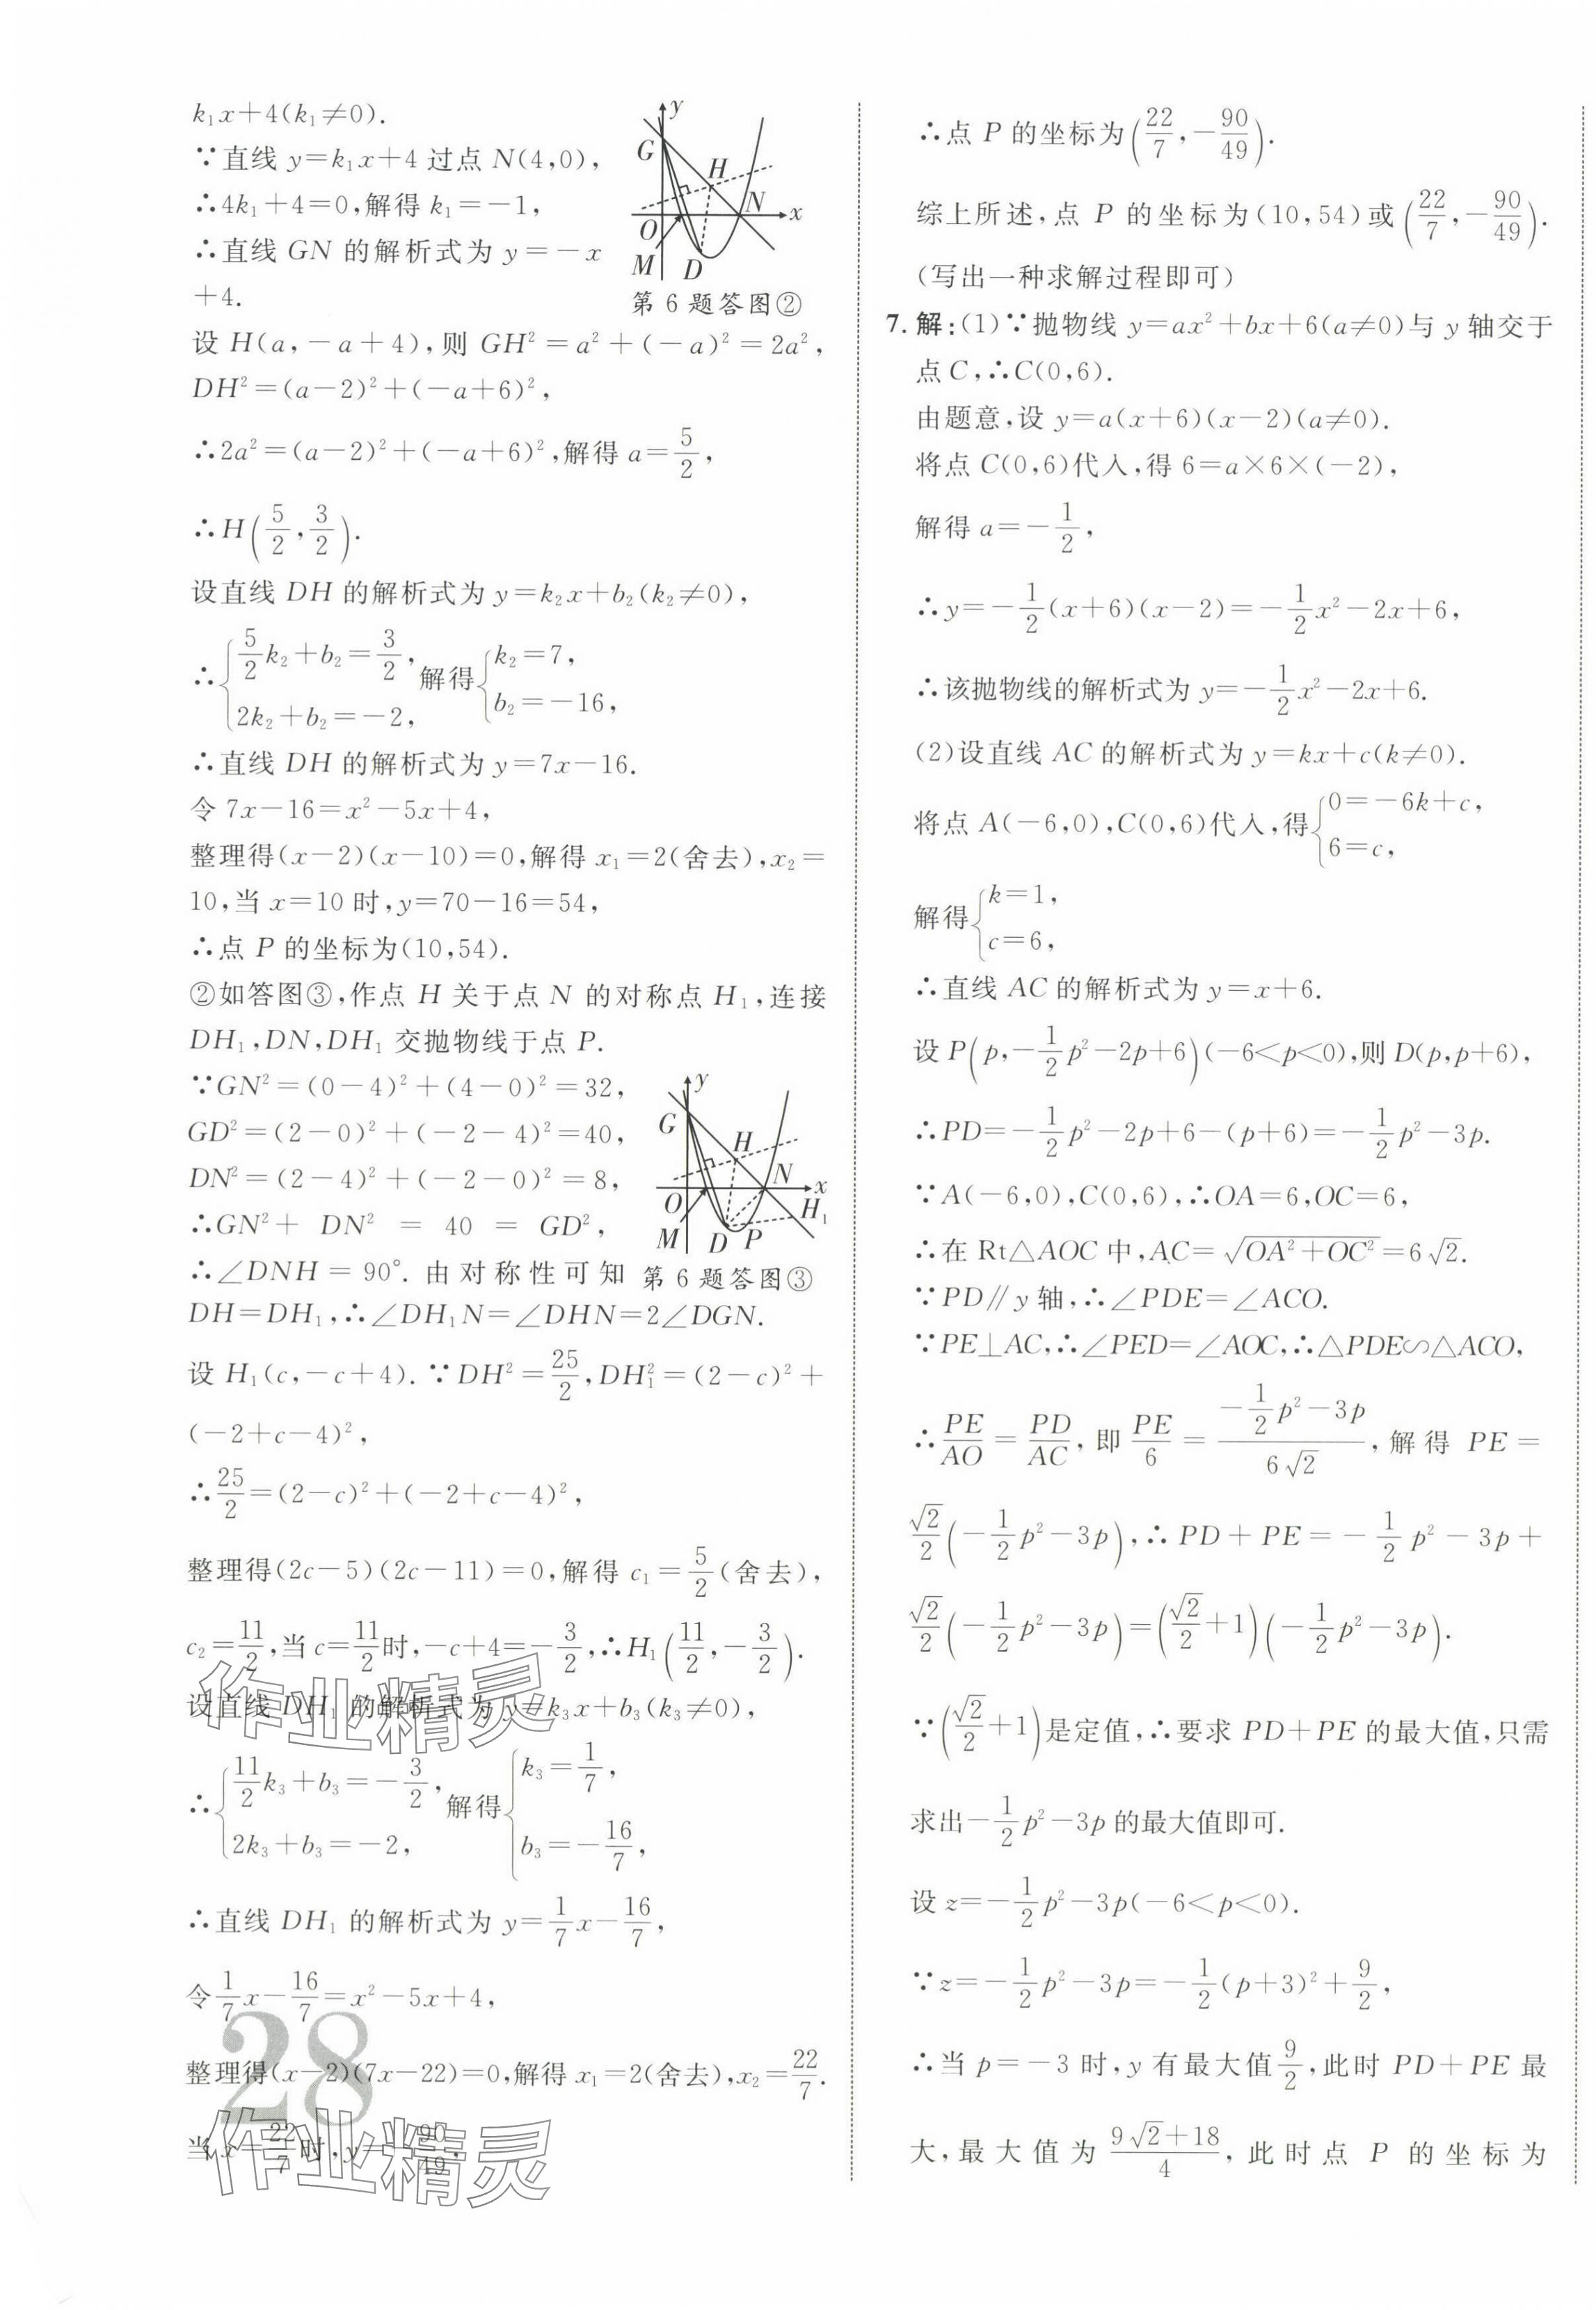 k₁x+4(k₁≠0).
∵直线 y=k₁x+4 过点 N(4,0),
∴4k₁+4=0,解得 k₁=-1,
∴直线 GN 的解析式为 y=-x
+4.
y
G
H
N
O
x
M
D
第 6 题答图②
设 H(a,-a+4),则 GH²=a²+(-a)²=2a²,
DH²=(a-2)²+(-a+6)²,
∴2a²=(a-2)²+(-a+6)²,解得 a=5/2,
∴H(5/2,3/2).
设直线 DH 的解析式为 y=k₂x+b₂(k₂≠0),
∴{5/2k₂+b₂=3/2, 2k₂+b₂=-2, 解得{k₂=7, b₂=-16,
∴直线 DH 的解析式为 y=7x-16.
令 7x-16=x²-5x+4,
整理得(x-2)(x-10)=0,解得 x₁=2(舍去),x₂=
10,当 x=10 时,y=70-16=54,
∴点 P 的坐标为(10,54).
②如答图③,作点 H 关于点 N 的对称点 H₁,连接
DH₁,DN,DH₁ 交抛物线于点 P.
∵GN²=(0-4)²+(4-0)²=32,
GD²=(2-0)²+(-2-4)²=40,
DN²=(2-4)²+(-2-0)²=8,
∴GN²+DN²=40=GD²,
∴∠DNH=90°.由对称性可知
y
G
H
N
O
x
H₁
M
D
P
第 6 题答图③
DH=DH₁,∴∠DH₁N=∠DHN=2∠DGN.
设 H₁(c,-c+4).∵DH²=25/2,DH₁²=(2-c)²+
(-2+c-4)²,
∴25/2=(2-c)²+(-2+c-4)²,
整理得(2c-5)(2c-11)=0,解得 c₁=5/2(舍去),
c₂=11/2,当 c=11/2时,-c+4=-3/2,∴H₁(11/2,-3/2).
设直线 DH₁ 的解析式为 y=k₃x+b₃(k₃≠0),
作业精灵
∴{11/2k₃+b₃=-3/2, 2k₃+b₃=-2, 解得{k₃=1/7, b₃=-16/7,
∴直线 DH₁ 的解析式为 y=1/7x-16/7,
令1/7x-16/7=x²-5x+4,
28
整理得(x-2)(7x-22)=0,解得 x₁=2(舍去),x₂=22/7.
当 x=22/7时,y=-90/49,
作业精灵
∴点 P 的坐标为(22/7,-90/49).
综上所述,点 P 的坐标为(10,54)或(22/7,-90/49).
(写出一种求解过程即可)
7.解:(1)∵抛物线 y=ax²+bx+6(a≠0)与 y 轴交于
点 C,∴C(0,6).
由题意,设 y=a(x+6)(x-2)(a≠0).
将点 C(0,6)代入,得 6=a×6×(-2),
解得 a=-1/2,
∴y=-1/2(x+6)(x-2)=-1/2x²-2x+6,
∴该抛物线的解析式为 y=-1/2x²-2x+6.
(2)设直线 AC 的解析式为 y=kx+c(k≠0).
将点 A(-6,0),C(0,6)代入,得{0=-6k+c, 6=c,
解得{k=1, c=6,
∴直线 AC 的解析式为 y=x+6.
设 P(p,-1/2p²-2p+6)(-6<p<0),则 D(p,p+6),
∴PD=-1/2p²-2p+6-(p+6)=-1/2p²-3p.
∵A(-6,0),C(0,6),∴OA=6,OC=6,
∴在 Rt△AOC 中,AC=√(OA²+OC²)=6√2.
∵PD∥y 轴,∴∠PDE=∠ACO.
∵PE⊥AC,∴∠PED=∠AOC,∴△PDE∽△ACO,
∴PE/AO=PD/AC,即 PE/6=(-1/2p²-3p)/(6√2),解得 PE=
√2/2(-1/2p²-3p),∴PD+PE=-1/2p²-3p+
√2/2(-1/2p²-3p)=(√2/2+1)(-1/2p²-3p).
∵(√2/2+1)是定值,∴要求 PD+PE 的最大值,只需
求出-1/2p²-3p 的最大值即可.
设 z=-1/2p²-3p(-6<p<0).
∵z=-1/2p²-3p=-1/2(p+3)²+9/2,
∴当 p=-3 时,y 有最大值9/2,此时 PD+PE 最
大,最大值为(9√2+18)/4,此时点 P 的坐标为